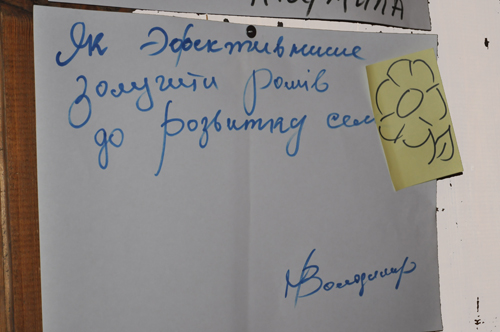 Як Эфективніше
залучити ромів
до розвитку сел
Володимир